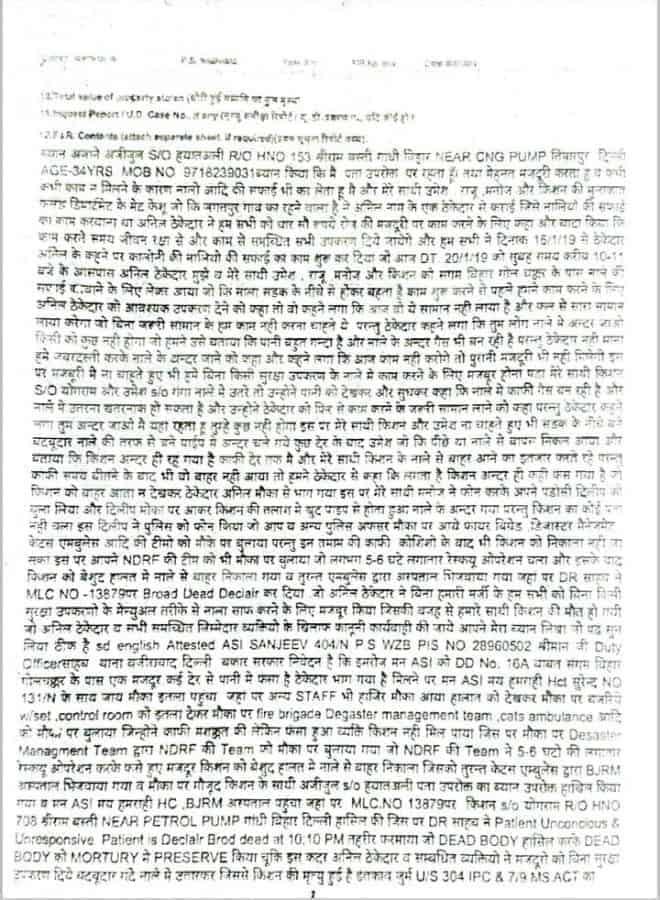 P.S.
10.Total value of property stolen (चोरी हुई सम्पत्ति का कुल मूल्य
11.Inquest Report / U.D. Case No., if any (मृत्यु समीक्षा रिपोर्ट / यू. डी. प्रकरण न., यदि कोई हो)
12.F.I.R. Contents (attach separate sheet, if required)(प्रथम सूचना रिपोर्ट तथ्य).
ब्यान अजाने अजीजुल S/O हयातअली R/O HNO 153 श्रीराम बस्ती गांधी विहार NEAR CNG PUMP तिमारपुर दिल्ली
AGE-34YRS MOB NO 9716239031ब्यान किया कि मै पता उपरोक्त पर रहता हूं। तथा मेहनत मजदूरी करता हूं व कभी
कभी काम न मिलने के कारण नालो आदि की सफाई भी का लेता हू मै और मेरे साथी उमेश , राजू ,मनोज और किशन की मुलाकात
डिपार्टमेंट के मेट केशू जो कि जगतपुर गांव का रहने वाला है ने अनिल नाम के एक ठेकेदार से कराई जिसे नालियों की सफाई
का काम करवाना था अनिल ठेकेदार ने हम सभी को चार सौ रूपये रोज की मजदूरी पर काम करने के लिए कहा और वादा किया कि
काम करते समय जीवन रक्षा से और काम से सम्बंधित सभी उपकरण दिये जायेगे और हम सभी ने दिनांक 15/1/19 से ठेकेदार
अनिल के कहने पर कालोनी की नालियों की सफाई का काम शुरू कर दिया जो आज DT. 20/1/19 को सुबह समय करीब 10-11
बजे के आसपास अनिल ठेकेदार मुझे व मेरे साथी उमेश , राजू मनोज और किशन को संगम विहार गोल चक्कर के पास नाले की
सफाई करवाने के लिए लेकर आया जो कि नाला सड़क के नीचे से होकर बहता है काम शुरू करने से पहले हमने काम करने के लिए
अनिल ठेकेदार को आवश्यक उपकरण देने को कहा तो वो कहने लगा कि आज वो ये सामान नहीं लाया है और कल से सारा सामान
लाया करेगा जो बिना जरूरी सामान के हम काम नही करना चाहते थे परन्तु ठेकेदार कहने लगा कि तुम लोग नाले में अन्दर जाओ
किसी को कुछ नही होगा जो हमने उसे बताया कि पानी बहुत गन्दा है और नाले के अन्दर गैस भी बन रही है परन्तु ठेकेदार नही माना
हमे जबरदस्ती करके नाले के अन्दर जाने को कहा और कहने लगा कि आज काम नही करोगे तो पुरानी मजदूरी भी नही मिलेगी इस
पर मजबूरी मै ना चाहते हुए भी हमे बिना किसी सुरक्षा उपकरण के नाले में काम करने के लिए मजबूर होना पडा मेरे साथी किशन
S/O योगराम और उमेश s/o गंगा नाले मे उतरे तो उन्होने पानी को देखकर और सुंघकर कहा कि नाले मे काफी गैस बन रही है और
नाले में उतरना खतरनाक हो सकता है और उन्होने ठेकेदार को फिर से काम करने के जरूरी सामान लाने को कहा परन्तु ठेकेदार कहने
लगा तुम अन्दर जाओ मै यही रहता हू तुम्हे कुछ नही होगा इस पर मेरे साथी किशन और उमेश ना चाहते हुए भी सड़क के नीचे बने
बदबूदार नाले की तरफ से बने पाईप मे अन्दर चले गये कुछ देर के बाद उमेश जो कि पीछे था नाले से वापस निकल आया और
बताया कि किशन अन्दर ही रह गया है काफी देर तक मै और मेरे साथी किशन के नाले से बाहर आने का इतजार करते रहे परन्तु
काफी समय बीतने के बाद भी वो बाहर नही आया तो हमने ठेकेदार से कहा कि लगता है किशन अन्दर ही कही फस गया है जो
किशन को बाहर आता न देखकर ठेकेदार अनिल मौका से भाग गया इस पर मेरे साथी मनोज ने फोन करके अपने पडोसी दिलीप को
बुला लिया और दिलीप मोका पर आकर किशन की तलाश मे खुद पाइप से होता हुआ नाले के अन्दर गया परन्तु किशन का कोई पता
नही चला इस दिलीप ने पुलिस को फोन किया जो आप व अन्य पुलिस अफसर मौका पर आये फायर ब्रिग्रेड , डिजास्टर मैनेजमेंट ,
केटस एम्बुलेंस आदि की टीमो को मौके पर बुलाया परन्तु इन तमाम की काफी कोशिशो के बाद भी किशन को निकाला नही जा
सका इस पर आपने NDRF की टीम को भी मौका पर बुलाया जो लगभग 5-6 घटे लगातार रेस्क्यू ओपरेशन चला और इसके बाद
किशन को बेशुद हालत मे नाले से बाहर निकाला गया व तुरन्त एम्बुलेंस द्वारा अस्पताल भिजवाया गया जहा पर DR साहब ने
MLC NO -13879पर Broad Dead Declair कर दिया जो अनिल ठेकेदार ने बिना हमारी मर्जी के हम सभी को बिना किसी
सुरक्षा उपकरणो के मेन्युअल तरीके से नाला साफ करने के लिए मजबूर किया जिसकी वजह से हमारे साथी किशन की मौत हो गयी
जो अनिल ठेकेदार व सभी सम्बंधित जिम्मेदार व्यक्तियो के खिलाफ कानूनी कार्यवाही की जाये आपने मेरा ब्यान लिखा जो पढ सुन
लिया ठीक है sd english Attested ASI SANJEEV 404/N P.S WZB PIS NO 28960502 श्रीमान जी Duty
Officerसाहब थाना वजीराबाद दिल्ली बकार सरकार निवेदन है कि इमरोज मन ASI को DD No. 16A बाबत संगम विहार
गोलचक्कर के पास एक मजदूर कई देर से पानी मे फंसा है ठेकेदार भाग गया है मिलने पर मन ASI मय हमराही Hct सुरेन्द NO
131/N के साथ जाय मौका इतला पहुचा जहां पर अन्य STAFF भी हाजिर मौका आया हालात को देखकर मौका पर बजरिये
w/set ,control room को इतला देकर मौका पर fire brigade Degaster management team ,cats ambulance आदि
को मौका पर बुलाया जिन्होने काफी मशक्कत की लेकिन फसा हुआ व्यक्ति किशन नही मिल पाया जिस पर मौका पर Desaster
Managment Team द्वारा NDRF की Team को मौका पर बुलाया गया जो NDRF की Team ने 5-6 घटो की लगातार
रेस्क्यू ओपरेशन करके फसे हुए मजदूर किशन को बेशुद हालत मे नाले से बाहर निकाला जिसको तुरन्त केटस एम्बुलेंस द्वारा BJRM
अस्पताल भिजवाया गया व मौका पर मौजूद किशन के साथी अजीजुल s/o हयातअली पता उपरोक्त का ब्यान उपरोक्त हासिल किया
गया व मन ASI मय हमराही HC ,BJRM अस्पताल पहुचा जहा पर MLC.NO 13879पर किशन s/o योगराम R/O HNO
708 श्रीराम बस्ती NEAR PETROL PUMP गांधी विहार दिल्ली हासिल की जिस पर DR साहब ने Patient Unconcious &
Unresponsive. Patient is Declair Brod dead at 10:10 PM तहरीर फरमाया जो DEAD BODY हासिल करके DEAD
BODY को MORTURY मे PRESERVE किया चूंकि इस कदर अनिल ठेकेदार व सम्बंधित व्यक्तियो ने मजदूरो को बिना सुरक्षा
उपकरण दिये बदबूदार गंदे नाले मे उतारकर जिससे किशन की मृत्यु हुई है इंतकाव जुर्म U/S 304 IPC & 7/9 MS ACT का
1